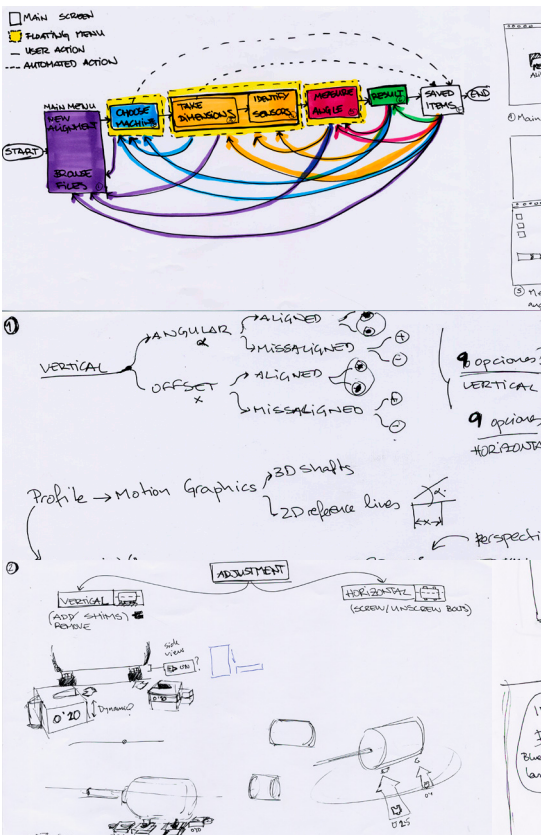 MAIN SCREEN
FLOATING MENU
USER ACTION
AUTOMATED ACTION
MAIN MENU
NEW ALIGNMENT
BROWSE FILES
START
CHOOSE MACHINE
TAKE DIMENSIONS
IDENTIFY SENSORS
MEASURE ANGLE
RESULT
SAVED ITEMS
END
① Main
⑤ Me
1
VERTICAL
ANGULAR
α
ALIGNED
MISSALIGNED
+
-
OFFSET
x
ALIGNED
MISSALIGNED
+
-
9 opciones
VERTICAL
9 opciones
HORIZONTA
Profile → Motion Graphics
3D shafts
2D reference lines
α
x
perspecti
2
ADJUSTMENT
VERTICAL
(ADD/ SHIMS)
REMOVE
HORIZONTAL
(SCREW/UNSCREW BOLTS)
side
view
?
0'20
Dynamic?
0'25